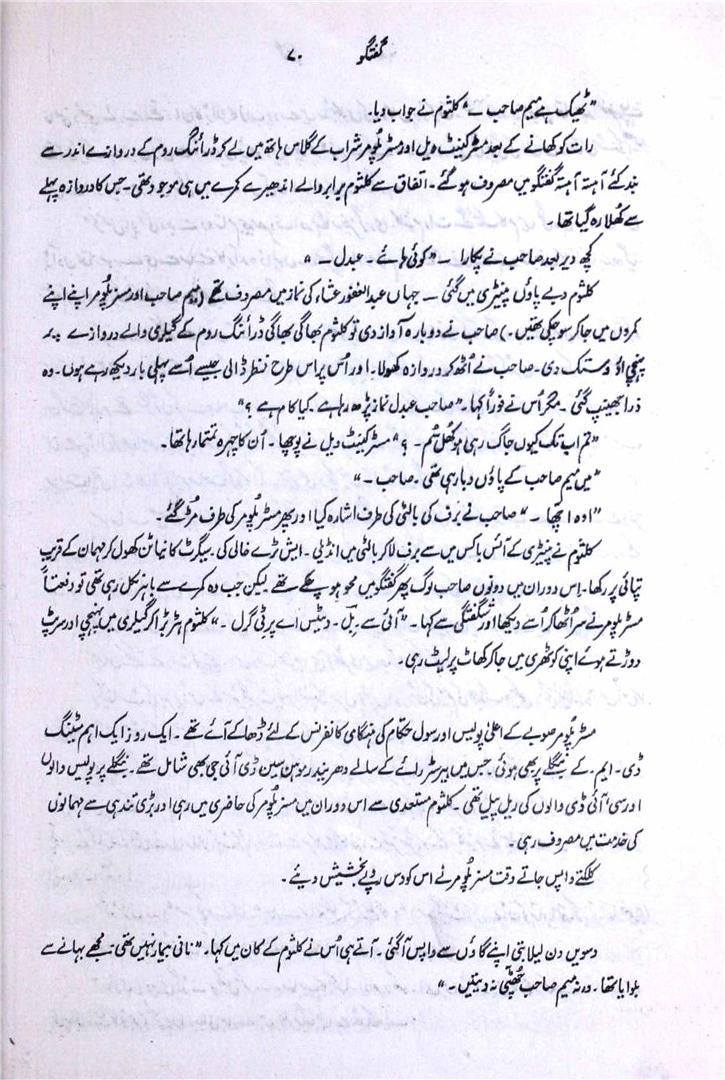 گفتگو ۷۰
"ٹھیک ہے میم صاحب۔" کلثوم نے جواب دیا۔
رات کو کھانے کے بعد مسٹر کینٹ ویل اور مسٹر پلومر شراب کے گلاس ہاتھ میں لے کر ڈرائنگ روم کے دروازے اندر سے
بند کئے آہستہ آہستہ گفتگو میں مصروف ہو گئے۔ اتفاق سے کلثوم برابر والے اندھیرے کمرے میں ہی موجود تھی۔ جس کا دروازہ پہلے
سے کھلا رہ گیا تھا۔
کچھ دیر بعد صاحب نے پکارا۔ "کوئی ہائے۔ عبدل۔"
کلثوم دبے پاؤں پینٹری میں گئی۔ جہاں عبدالغفور عشاء کی نماز میں مصروف تھے (میم صاحب اور مسز پلومر اپنے اپنے
کمروں میں جا کر سو چکی تھیں۔) صاحب نے دوبارہ آواز دی تو کلثوم بھاگی بھاگی ڈرائنگ روم کے گیلری والے دروازے پر
پہنچی اور دستک دی۔ صاحب نے اُٹھ کر دروازہ کھولا۔ اور اُس پر اس طرح نظر ڈالی جیسے اُسے پہلی بار دیکھ رہے ہوں۔ وہ
ذرا جھینپ گئی۔ مگر اُس نے فوراً کہا۔ "صاحب عبدل نماز پڑھ رہا ہے۔ کیا کام ہے؟"
"تم اب تک کیوں جاگ رہی ہو کھل ثم۔؟" مسٹر کینٹ ویل نے پوچھا۔ اُن کا چہرہ تمتما رہا تھا۔
"میں میم صاحب کے پاؤں دبا رہی تھی۔ صاحب۔"
"اوہ اچھا۔" صاحب نے برف کی بالٹی کی طرف اشارہ کیا اور پھر مسٹر پلومر کی طرف مُڑ گئے۔
کلثوم نے پینٹری کے آئس باکس میں سے برف لا کر بالٹی میں انڈیلی۔ ایش ٹرے خالی کی۔ سگرٹ کا نیا ٹن کھول کر مہمان کے قریب
تپائی پر رکھا۔ اس دوران میں دونوں صاحب لوگ پھر گفتگو میں محو ہو چکے تھے لیکن جب وہ کمرے سے باہر نکل رہی تھی تو دفعتاً
مسٹر پلومر نے سر اُٹھا کر اُسے دیکھا اور شگفتگی سے کہا۔ "آئی سے بِل۔ دیٹس اے پرٹی گرل۔" کلثوم ہڑبڑا کر گیلری میں پہنچی اور سرپٹ
دوڑتے ہوئے اپنی کوٹھری میں جا کر کھاٹ پر لیٹ رہی۔
مسٹر پلومر صوبے کے اعلیٰ پولیس اور سول حکام کی ہنگامی کانفرنس کے لئے ڈھاکے آئے تھے۔ ایک روز ایک اہم میٹنگ
ڈی۔ ایم۔ کے بنگلے پر بھی ہوئی۔ جس میں بیرسٹر رائے کے سالے دھریندر موہن سین ڈی آئی جی بھی شامل تھے۔ بنگلے پر پولیس والوں
اور سی آئی ڈی والوں کی ریل پیل تھی۔ کلثوم مستعدی سے اس دوران میں مسز پلومر کی حاضری میں رہی اور بڑی تندہی سے مہمانوں
کی خدمت میں مصروف رہی۔
کلکتے واپس جاتے وقت مسز پلومر نے اس کو دس روپے بخشیش دیئے۔
دسویں دن لیلا بتی اپنے گاؤں سے واپس آ گئی۔ آتے ہی اُس نے کلثوم کے مکان میں کہا۔ "نانی بیمار نہیں تھی۔ مجھے بہانے سے
بلوایا تھا۔ ورنہ میم صاحب چھٹی نہ دیتیں۔"